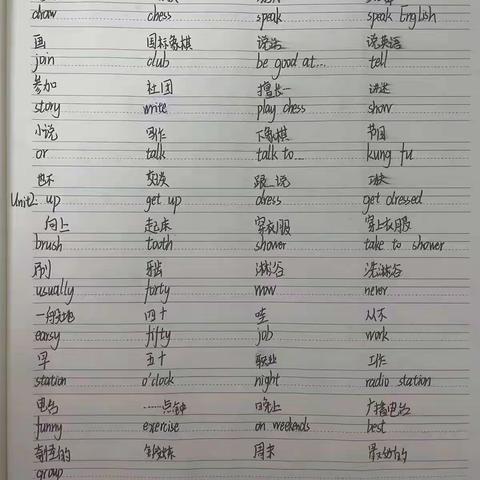 draw chess speak speak English
画 国标象棋 说话 说英语
join club be good at... tell
参加 社团 擅长一 讲述
story write play chess show
小说 写作 下象棋 节目
or talk talk to... kung fu
也不 交谈 跟…说 功夫
Unit2: up get up dress get dressed
向上 起床 穿衣服 穿上衣服
brush tooth shower take to shower
刷 牙齿 淋浴 洗淋浴
usually forty wow never
一般地 四十 哇 从不
earsy fifty job work
早 五十 职业 工作
station o'clock night radio station
电台 ……点钟 晚上 广播电台
funny exercise on weekends best
奇怪的 锻炼 周末 最好的
group